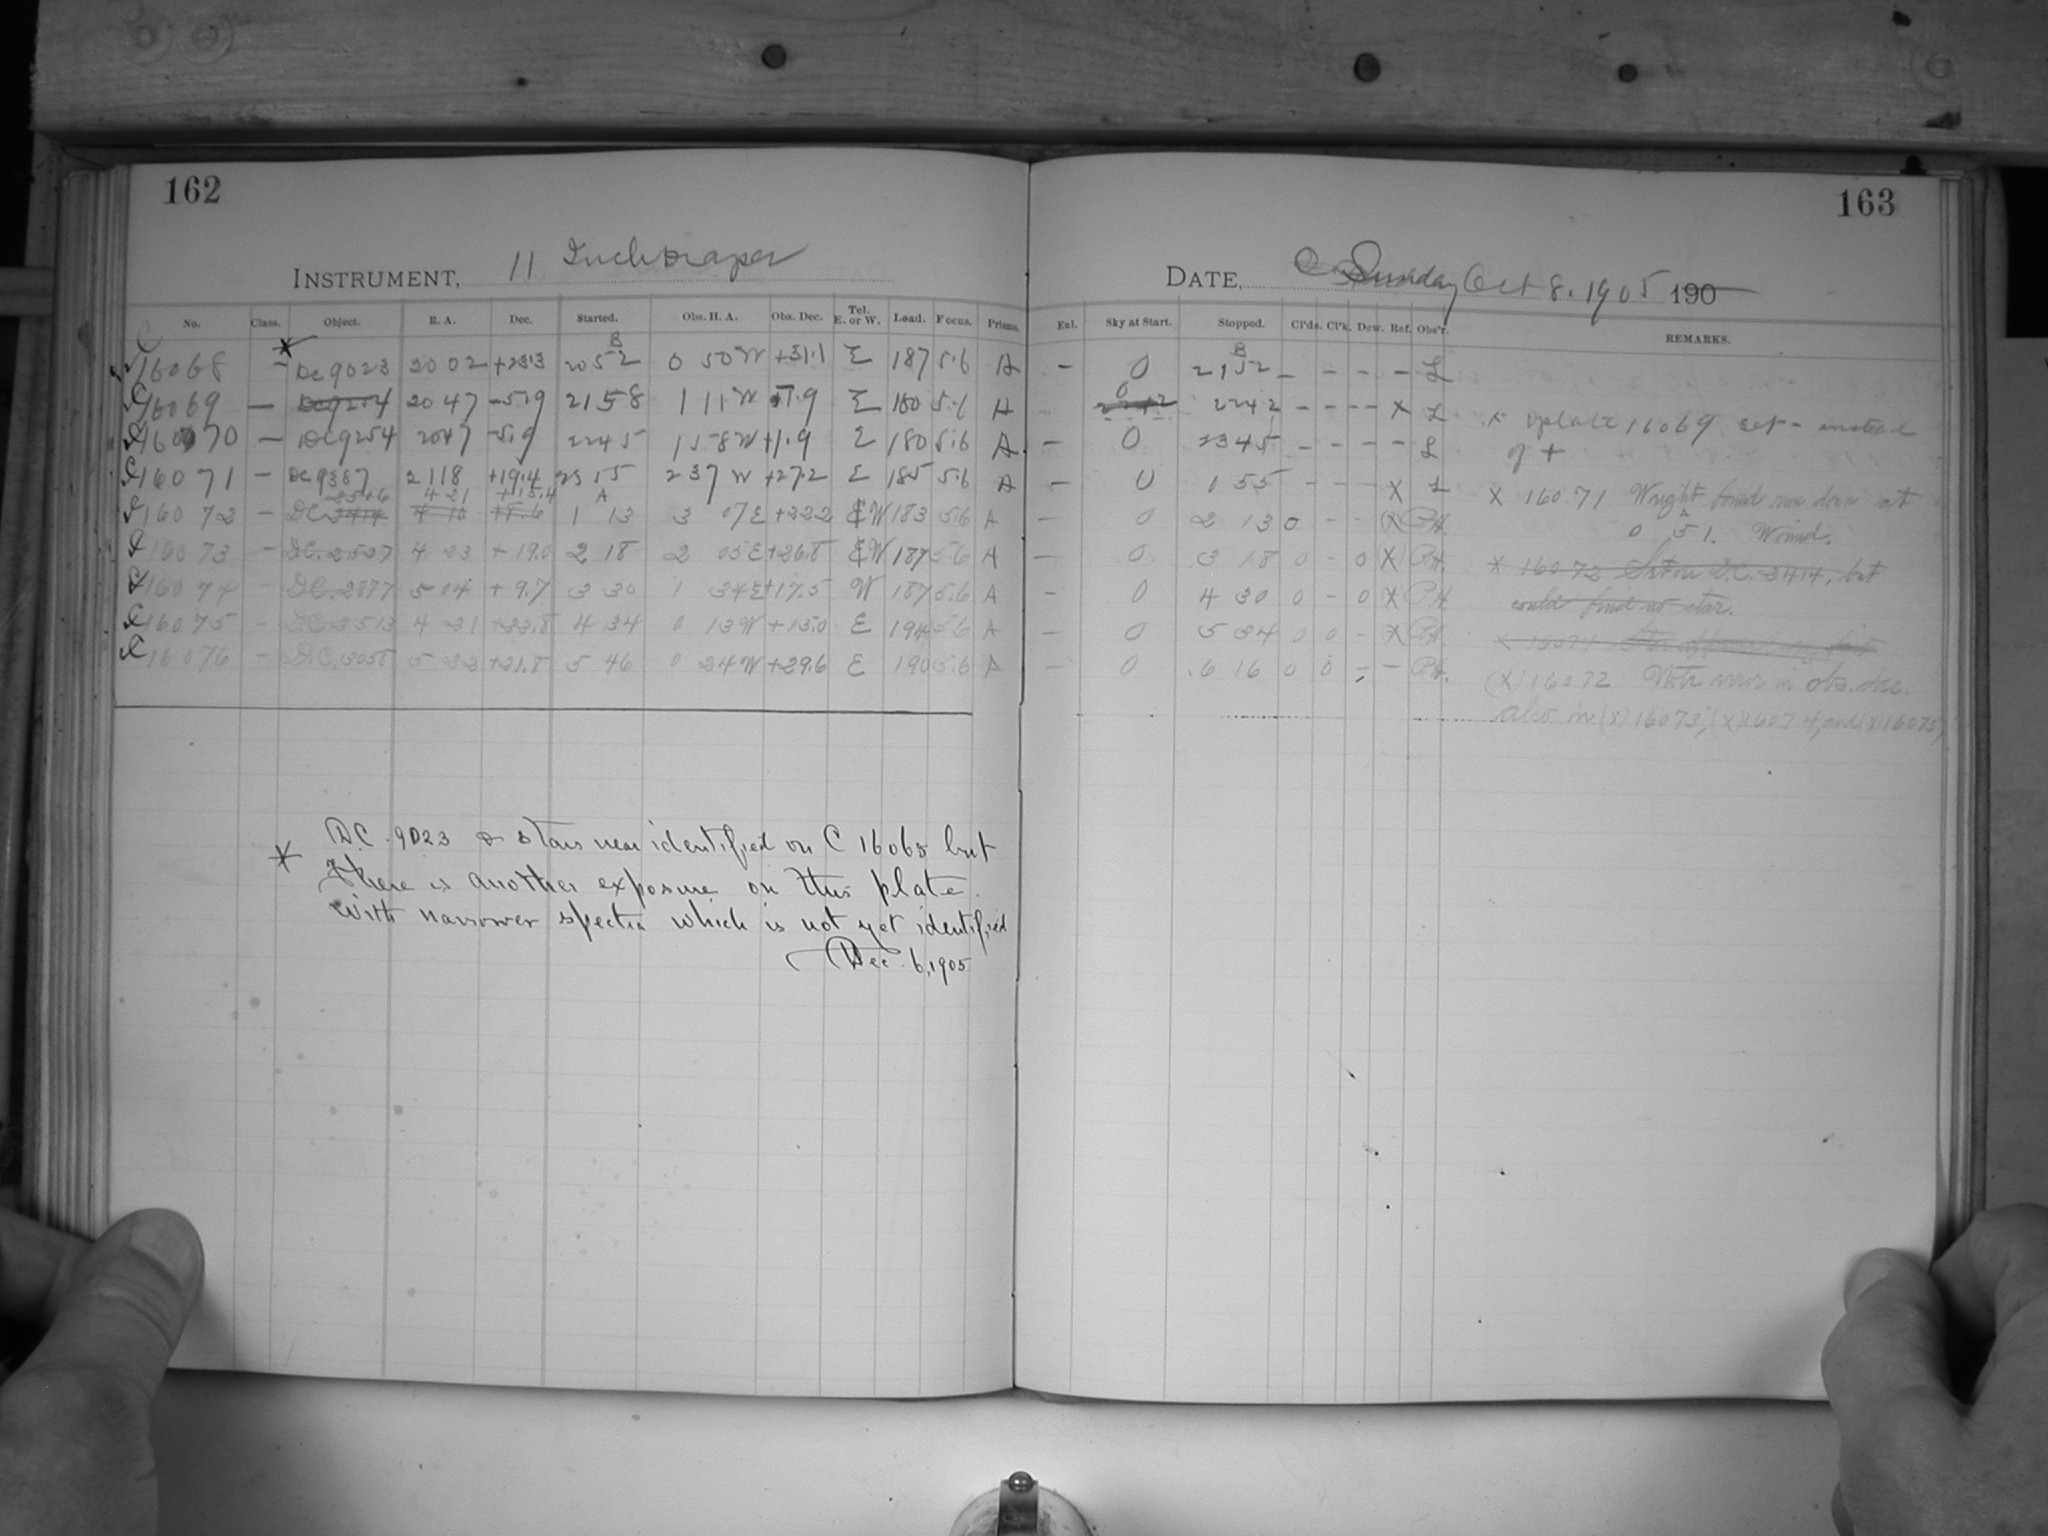 162
INSTRUMENT, 11 Inch Draper
No. Class. Object. R. A. Dec. Started. Obs. H. A. Obs. Dec. Tel. E. or W. Load. Focus. Prisms.
C 16068 - * DC 9023 20 02 +23.3 20 52 B 0 50 W +31.1 E 187 5.6 A
C 16069 - DC 9254 20 47 -5.9 21 58 1 11 W +1.9 E 180 5.6 A
C 16070 - DC 9254 20 47 -5.9 22 45 1 58 W +1.9 E 180 5.6 A
C 16071 - DC 9387 21 18 +19.4 23 15 2 37 W +27.2 E 185 5.6 A
4 21 +15.4 A
C 16072 - DC 2414 4 10 +8.6 1 13 3 07 E +22.2 W 183 5.6 A
C 16073 - DC. 2527 4 23 +19.0 2 18 2 05 E +26.8 W 187 5.6 A
C 16074 - DC. 2877 5 04 +9.7 3 30 1 34 E +17.5 W 187 5.6 A
C 16075 - DC 2513 4 21 +22.8 4 34 0 13 W +15.0 E 194 5.6 A
C 16076 - DC. 3058 5 22 +21.8 5 46 0 24 W +29.6 E 190 5.6 A
* D.C. 9023 & stars near identified on C 16065 but
there is another exposure on this plate
with narrower spectra which is not yet identified
Dec. 6, 1905
163
DATE, Sunday Oct 8. 1905 190
Enl. Sky at Start. Stopped. Cl'ds. Cl'k. Dew. Ref. Obs'r. REMARKS.
- 0 21 52 B - - - - L
0 2242 22 42 - - - x L x plate 16069 set - instead
- 0 23 45 - - - - L of +
- 0 0 55 - - - X L X 16071 Wright found run down at
- 0 2 13 0 - - (X) PH. 0 51. Wound.
- 0 3 18 0 - 0 (X) PH. X 16072 Set on D.C. 2414, but
- 0 4 30 0 - 0 (X) PH could find no star.
- 0 5 34 0 0 - X PH. X 16074
- 0 6 16 0 0 - - PH. (X) 16072 Note error in obs. dec.
also in (X) 16073, (X) 16074, and (X) 16075,